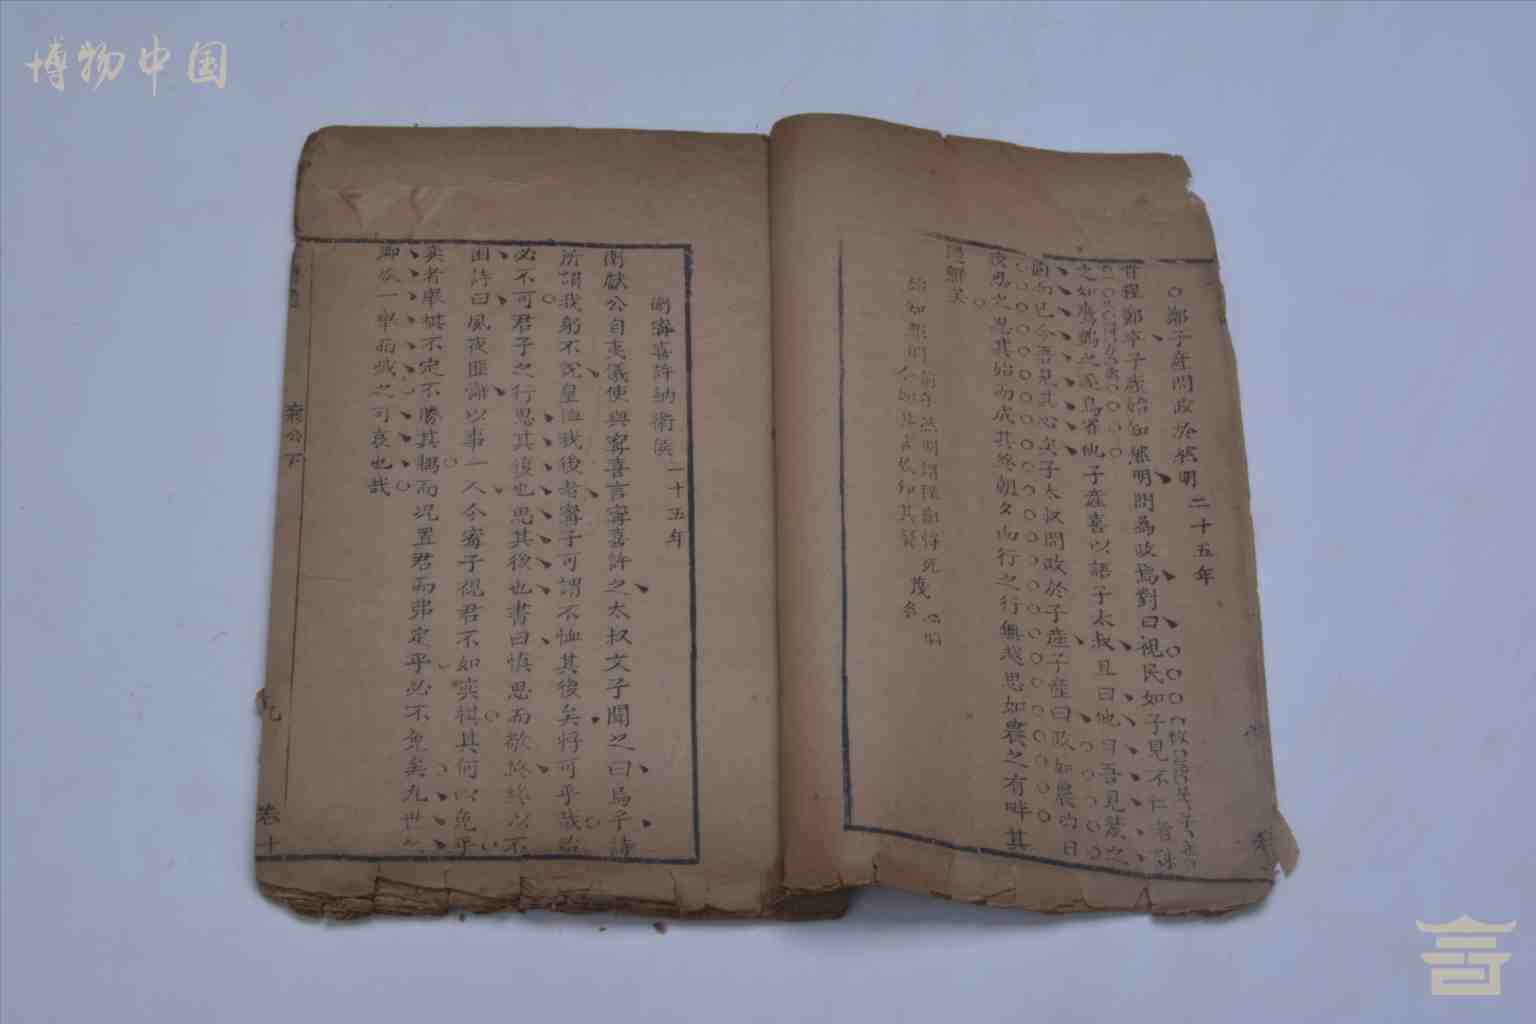 博物中国
○鄭子產問政於然明二十五年
晉程鄭卒子產始知然明問為政焉對曰視民如子見不仁者誅
之如鷹鸇之逐鳥雀也子產喜以語子太叔且曰他日吾見蔑之
面而已今吾見其心矣子太叔問政於子產子產曰政如農功日
夜思之思其始而成其終朝夕而行之行無越思如農之有畔其
過鮮矣
衛甯喜許納衛侯二十五年
衛獻公自夷儀使與甯喜言甯喜許之太叔文子聞之曰烏乎詩
所謂我躬不說皇恤我後者甯子可謂不恤其後矣將可乎哉殆
必不可君子之行思其後也思其復也書曰慎思而敬終終以不
困詩曰夙夜匪懈以事一人今甯子視君不如奕棋其何以免乎
奕者舉棋不定不勝其耦而況置君而弗定乎必不免矣九世之
卿族一舉而滅之可哀也哉
襄公下
九
卷十